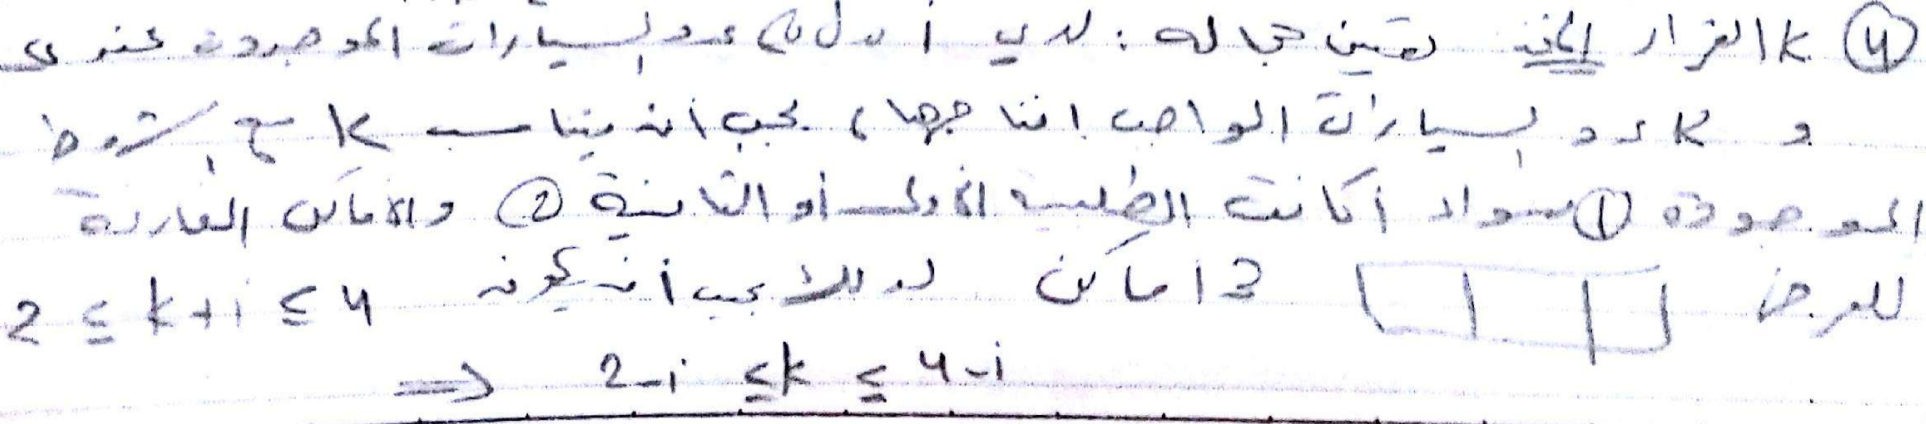 ④ k القرار المتخذ نعين مجاله : لدي i تدل على عدد السيارات الموجودة عندي
و k عدد السيارات الواجب انتاجها ، يجب أن يتناسب k مع الشروط
الموجودة ① سواء أكانت الطلبية الأولى أو الثانية ② والأماكن الفارغة
للعرض 3 أماكن لذلك يجب أن يكون 2 ≤ k+i ≤ 4
⇒ 2-i ≤ k ≤ 4-i